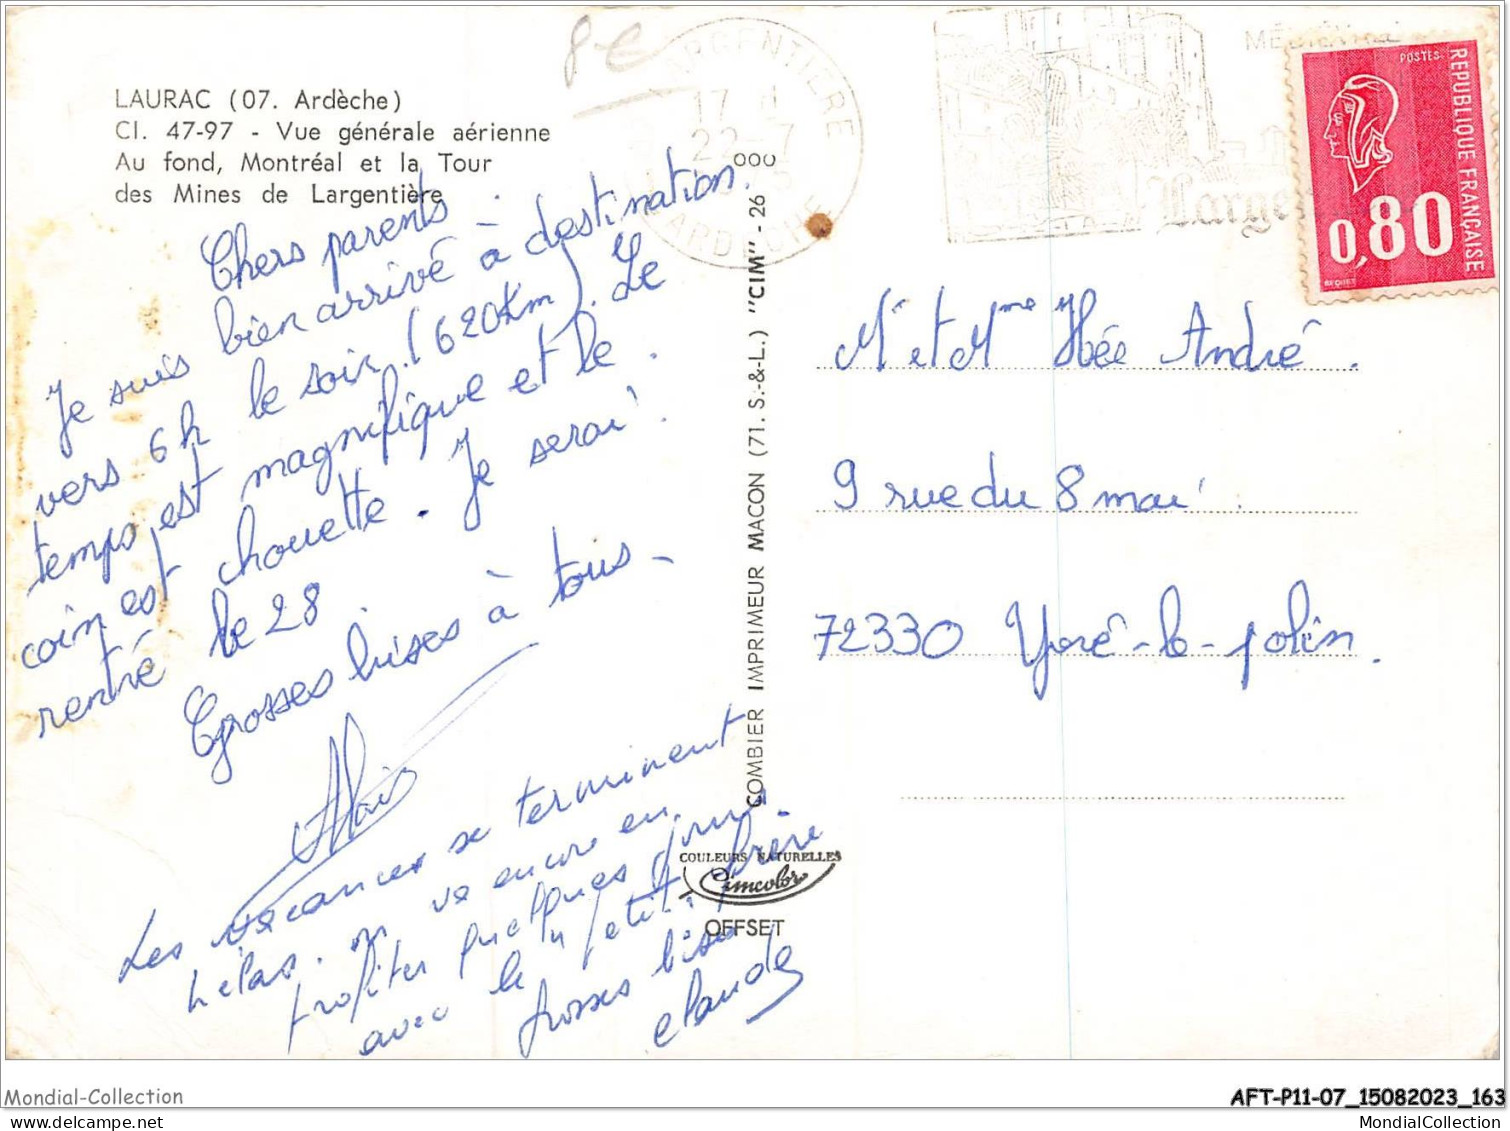 LAURAC (07. Ardèche)
Cl. 47-97 - Vue générale aérienne
Au fond, Montréal et la Tour
des Mines de Largentière
8€
ARGENTIERE
17 H
22-7
ARDECHE
MÉDIÉVALE
Large
POSTES
REPUBLIQUE FRANÇAISE
0,80
BEQUET
Chers parents -
Je suis bien arrivé à destination.
vers 6h le soir (620 Km). Le
temps est magnifique et le
coin est chouette. Je serai
rentré le 28
Grosses bises à tous -
Alain
Les vacances se terminent
hélas. on va encore en
profiter quelques jours
avec le petit frère
grosses bises
claude
COMBIER IMPRIMEUR MACON (71. S.-&-L.) "CIM" - 26
000
COULEURS NATURELLES
Cimcolor
OFFSET
Mr et Mme Hée André.
9 rue du 8 mai
72330 Yvré-le-polin.
Mondial-Collection
AFT-P11-07_15082023_163
MondialCollection